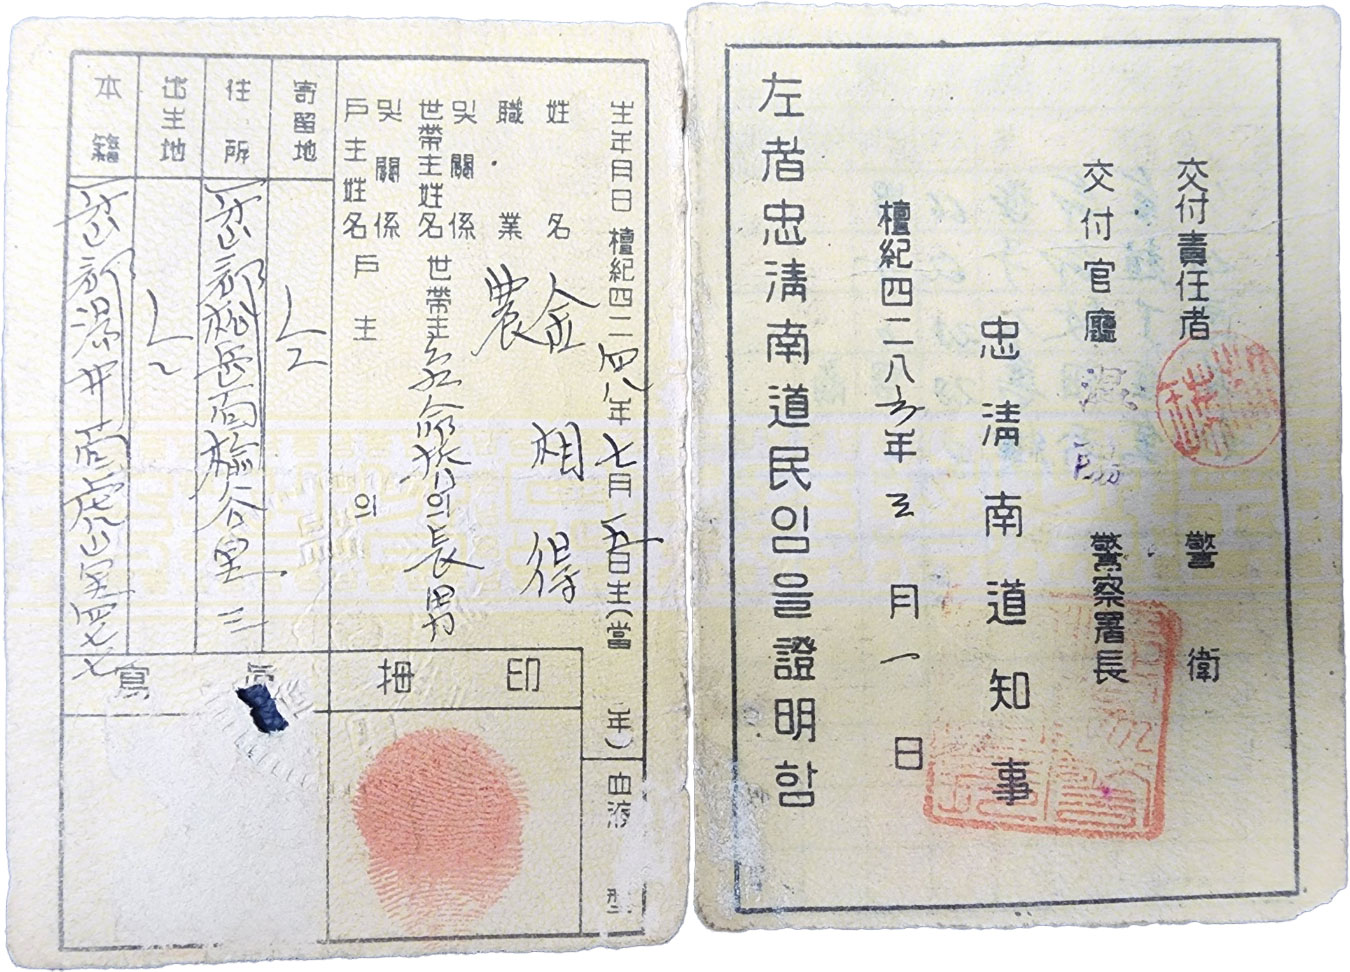 左者忠淸南道民임을證明함
檀紀四二八六年 三月 一日
忠淸南道知事
交付官廳 溫陽 警察署長
交付責任者 警衛
生年月日 檀紀四二四八年七月 日生(當 年)
血液型
姓名 金相得
職業 農
世帶主姓名및關係 世帶主 의長男
戶主姓名및關係 戶主 의
寄留地
住所 牙山郡松岳面 谷里三
出生地
本籍 牙山郡湯井面 山里四七七
拇印
寫眞